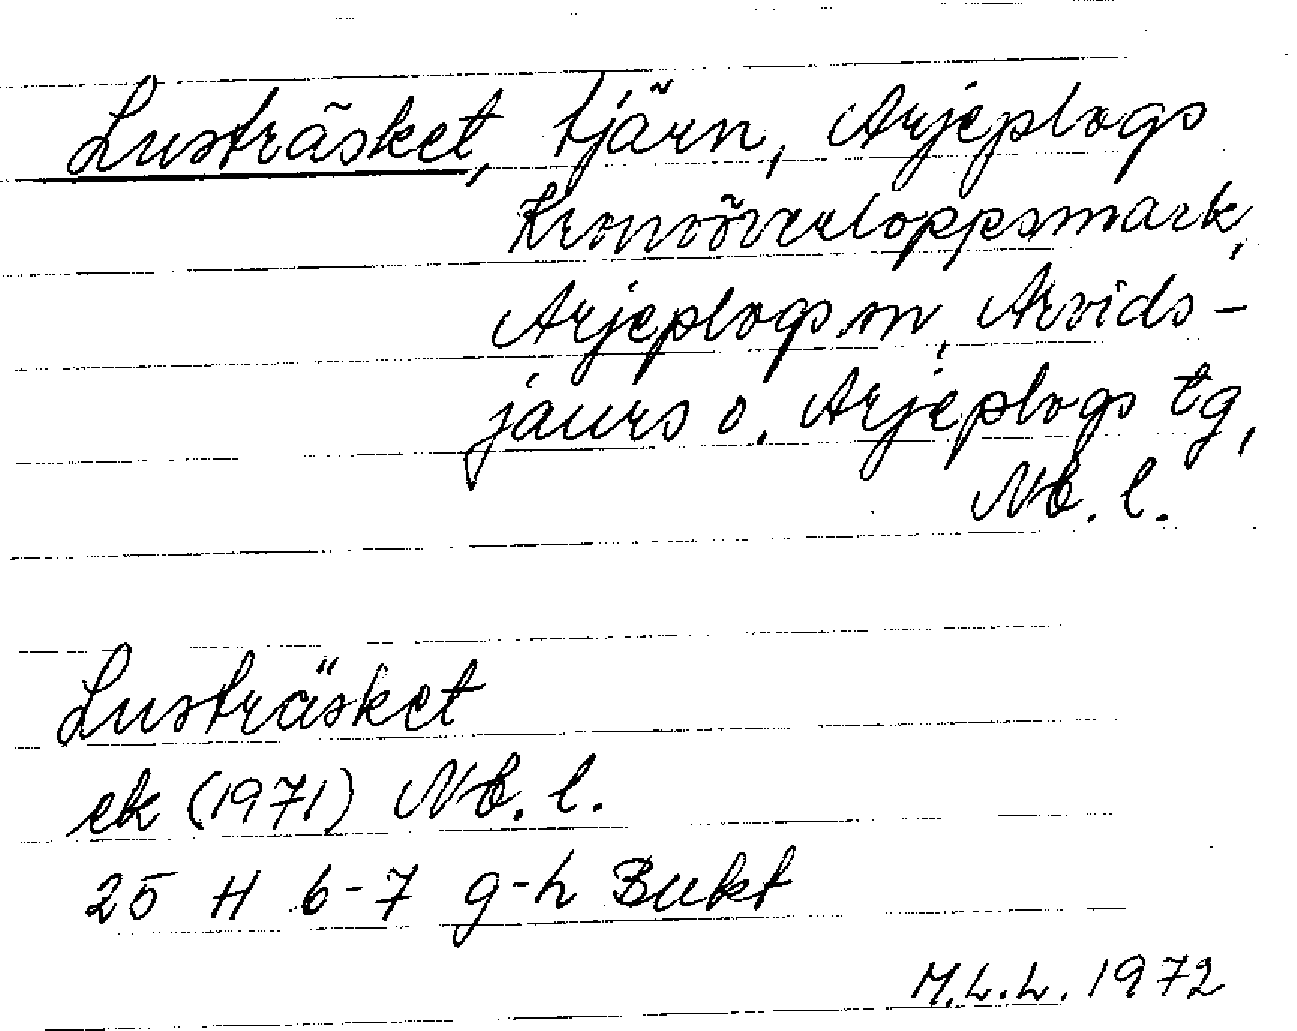 Lusträsket, tjärn, Arjeplogs
Kronoöverloppsmark,
Arjeplogs sn, Arvids-
jaurs o. Arjeplogs tg,
Nb. l.
Lusträsket
ek (1971) Nb. l.
25 H 6-7 g-h Bukt
M.L.L. 1972